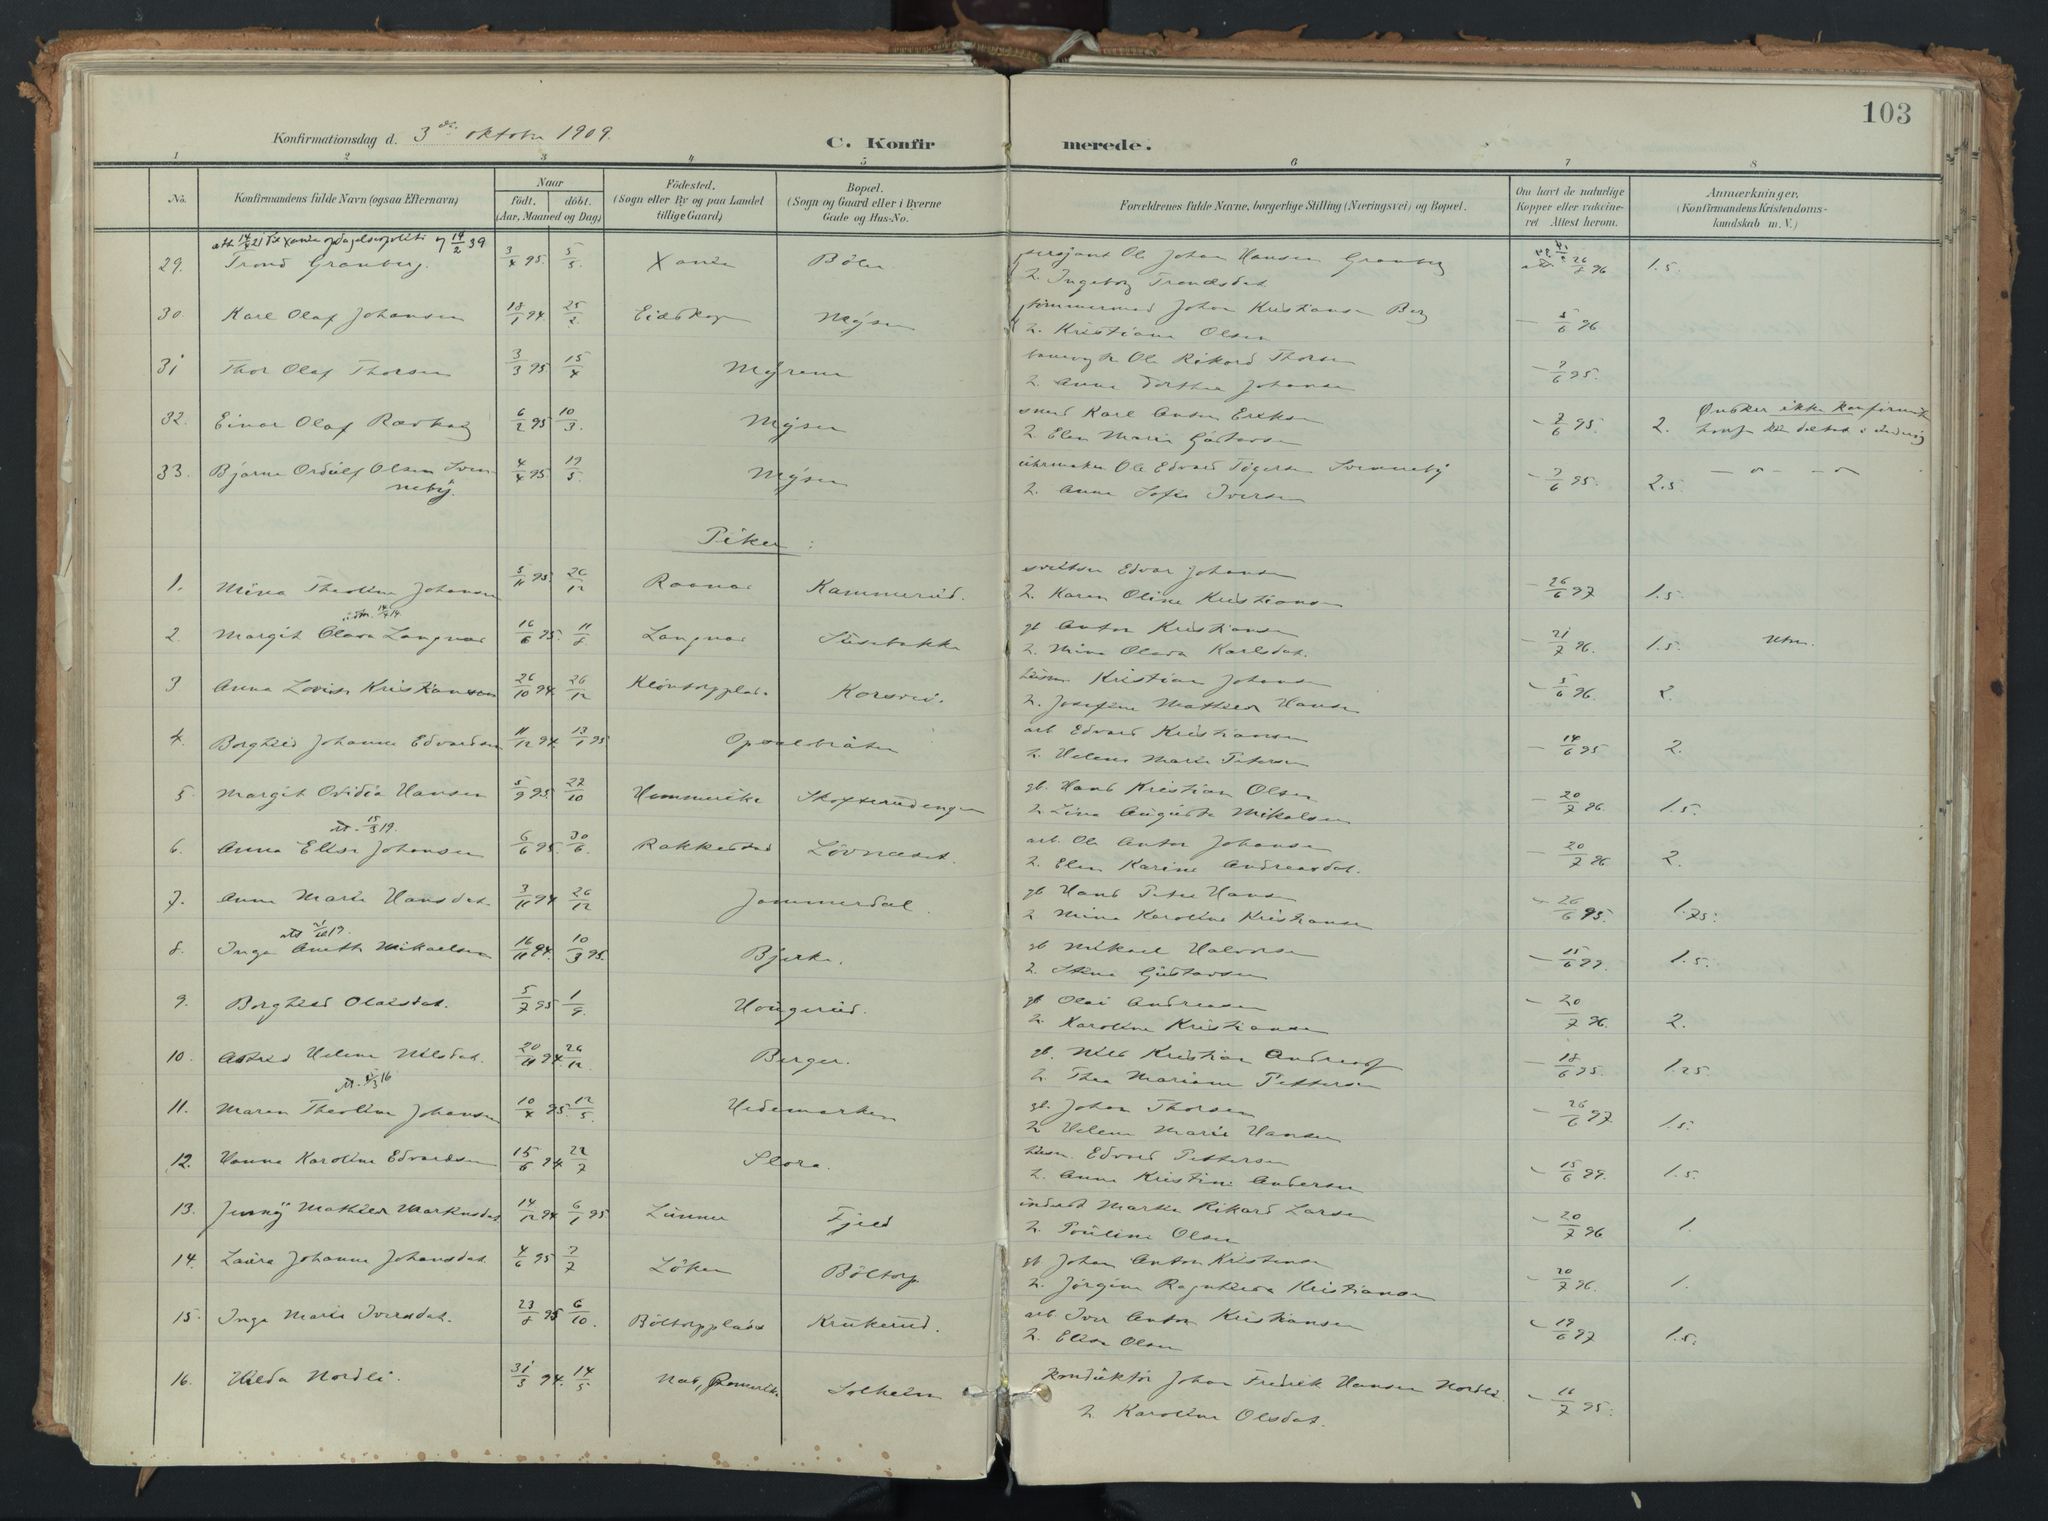 103
Konfirmationsdag d. 3 oktober 1909.
C. Konfirmerede.
1 2 3 4 5 6 7 8
No. Konfirmandens fulde Navn (ogsaa Efternavn) Naar født. døbt. (Aar, Maaned og Dag) Födested. (Sogn eller By og paa Landet tillige Gaard) Bopæl. (Sogn og Gaard eller i Byerne Gade og Hus-No. Forældrenes fulde Navne, borgerlige Stilling (Næringsvei) og Bopæl. Om havt de naturlige Kopper eller vaccineret Attest herom. Anmærkninger. (Konfirmandens Kristendomskundskab m. V.)
29. Trond Granberg. 3/4 95. 5/5 Xania Böler Ole Johan Hansen Granberg 26/7 96 1.5.
2. Ingeborg Trondsdat
30. Karl Olaf Johansen 18/1 94. 25/2 Eidskog Mysen Johan Kristiansen Berg – 5/6 96
2. Kristiane Olsen
31 Thor Olaf Thorsen 3/3 95 15/4 Myrene Ole Rikard Thorsen – 7/6 95.
2. Anna Dorthea Johansen
32. Einar Olaf Ravhaug 6/2 95 10/3 Mysen smed Karl Anton Eriksen – 7/6 95. 2. Ønsker ikke konfirmation
2. Elen Marie Gustavsen
33. Bjarne Ordulf Olsen Svenneby. 4/4 95 19/5 Mysen uhrmaker Ole Edvard Svenneby – 7/6 95. 2.5 – o – – o –
2. Anna Sofie Iversen
Piker:
1. Mina Theoline Johansen 5/11 95. 26/12 Kammerud. Edvar Johansen – 26/6 97 1.5
2. Karen Oline Kristiansen
2. Margit Olava Langnæs 16/6 95. 11/8 Langnæs Susebakke gb Anton Kristiansen – 21/7 96. 1.5
2. Mina Olava Karlsdat.
3 Anna Lovise Kristiansen 26/10 94. 26/12 Korsvei. Kristian Johansen – 5/6 96 2.
2. Josefine Mathilde Hansen
4. Borghild Johanne Edvardsen 11/12 94. 13/1 95 Opsalbråten arb Edvard Kristiansen – 14/6 95 2.
2. Helene Marie Petersen
5 Margit Ovidia Hansen 5/9 95. 27/10 Skofterudengen gb. Hans Kristian Olsen – 20/7 96. 1.5.
2. Lina Augusta Mikalsen
att. 15/3 19.
6. Anna Elise Johansen 6/6 95. 30/6 Rakkestad Lövnæset. arb. Ole Anton Johansen – 20/7 96 2.
2. Elen Karine Andreasdat.
7. Anna Marie Hansdat. 3/11 94 26/12 Jammerdal. gb Hans Peter Hansen 26/6 95. 1.75.
2. Mina Karoline Kristiansen
8. Inga Aneth Mikaelsen 16/11 94. 10/3 95. Bjerke. gb Mikael Halvorsen – 15/6 99. 1.5.
2. Stine Gustavsen
9. Borghild Olaisdat. 5/7 95 1/9 Hougerud. gb Olai Andreasen – 20/7 96. 2.
2. Karoline Kristiansen
10. Astrid Helene Nilsdat. 20/11 94. 26/12 Berger. gb. Nils Kristian Andreas – 18/6 95. 1.25.
2. Thea Mariane Pettersen
11. Maren Theoline Johansen 10/4 95. 12/5 Hedemarken gb. Johan Thorsen – 26/6 97 1.5.
2 Helene Marie Hansen
12. Hanna Karoline Edvardsen 15/6 94. 22/7 Slora. Edvard Pettersen – 15/6 99. 1.5.
2. Anne Kristine Andersen
13. Jenny Mathilde Markusdat 14/12 94 6/1 95 Lunner Fjeld Rikard Larsen – 20/7 96 1.
2. Pauline Olsen
14. Laura Johanne Johansdat. 4/6 95 7/7 Löken Böltorp gb Johan Anton Kristensen – 20/7 96. 1.
2. Jörgine Ragnhilda Kristiansen
15. Inga Marie Iversdat. 23/8 95 6/10. Böltorpplads Krukerud. arb. Iver Anton Kristiansen 19/6 97 1.5.
2. Elise Olsen
16. Hilda Nordli. 31/3 94. 14/5 Solheim konduktör Johan Fredrik Hansen Nordli – 16/7 95.
2. Karoline Olsdat.